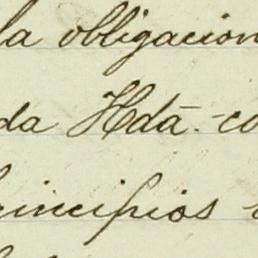 la obligacion
da Hdā. co
rincipios